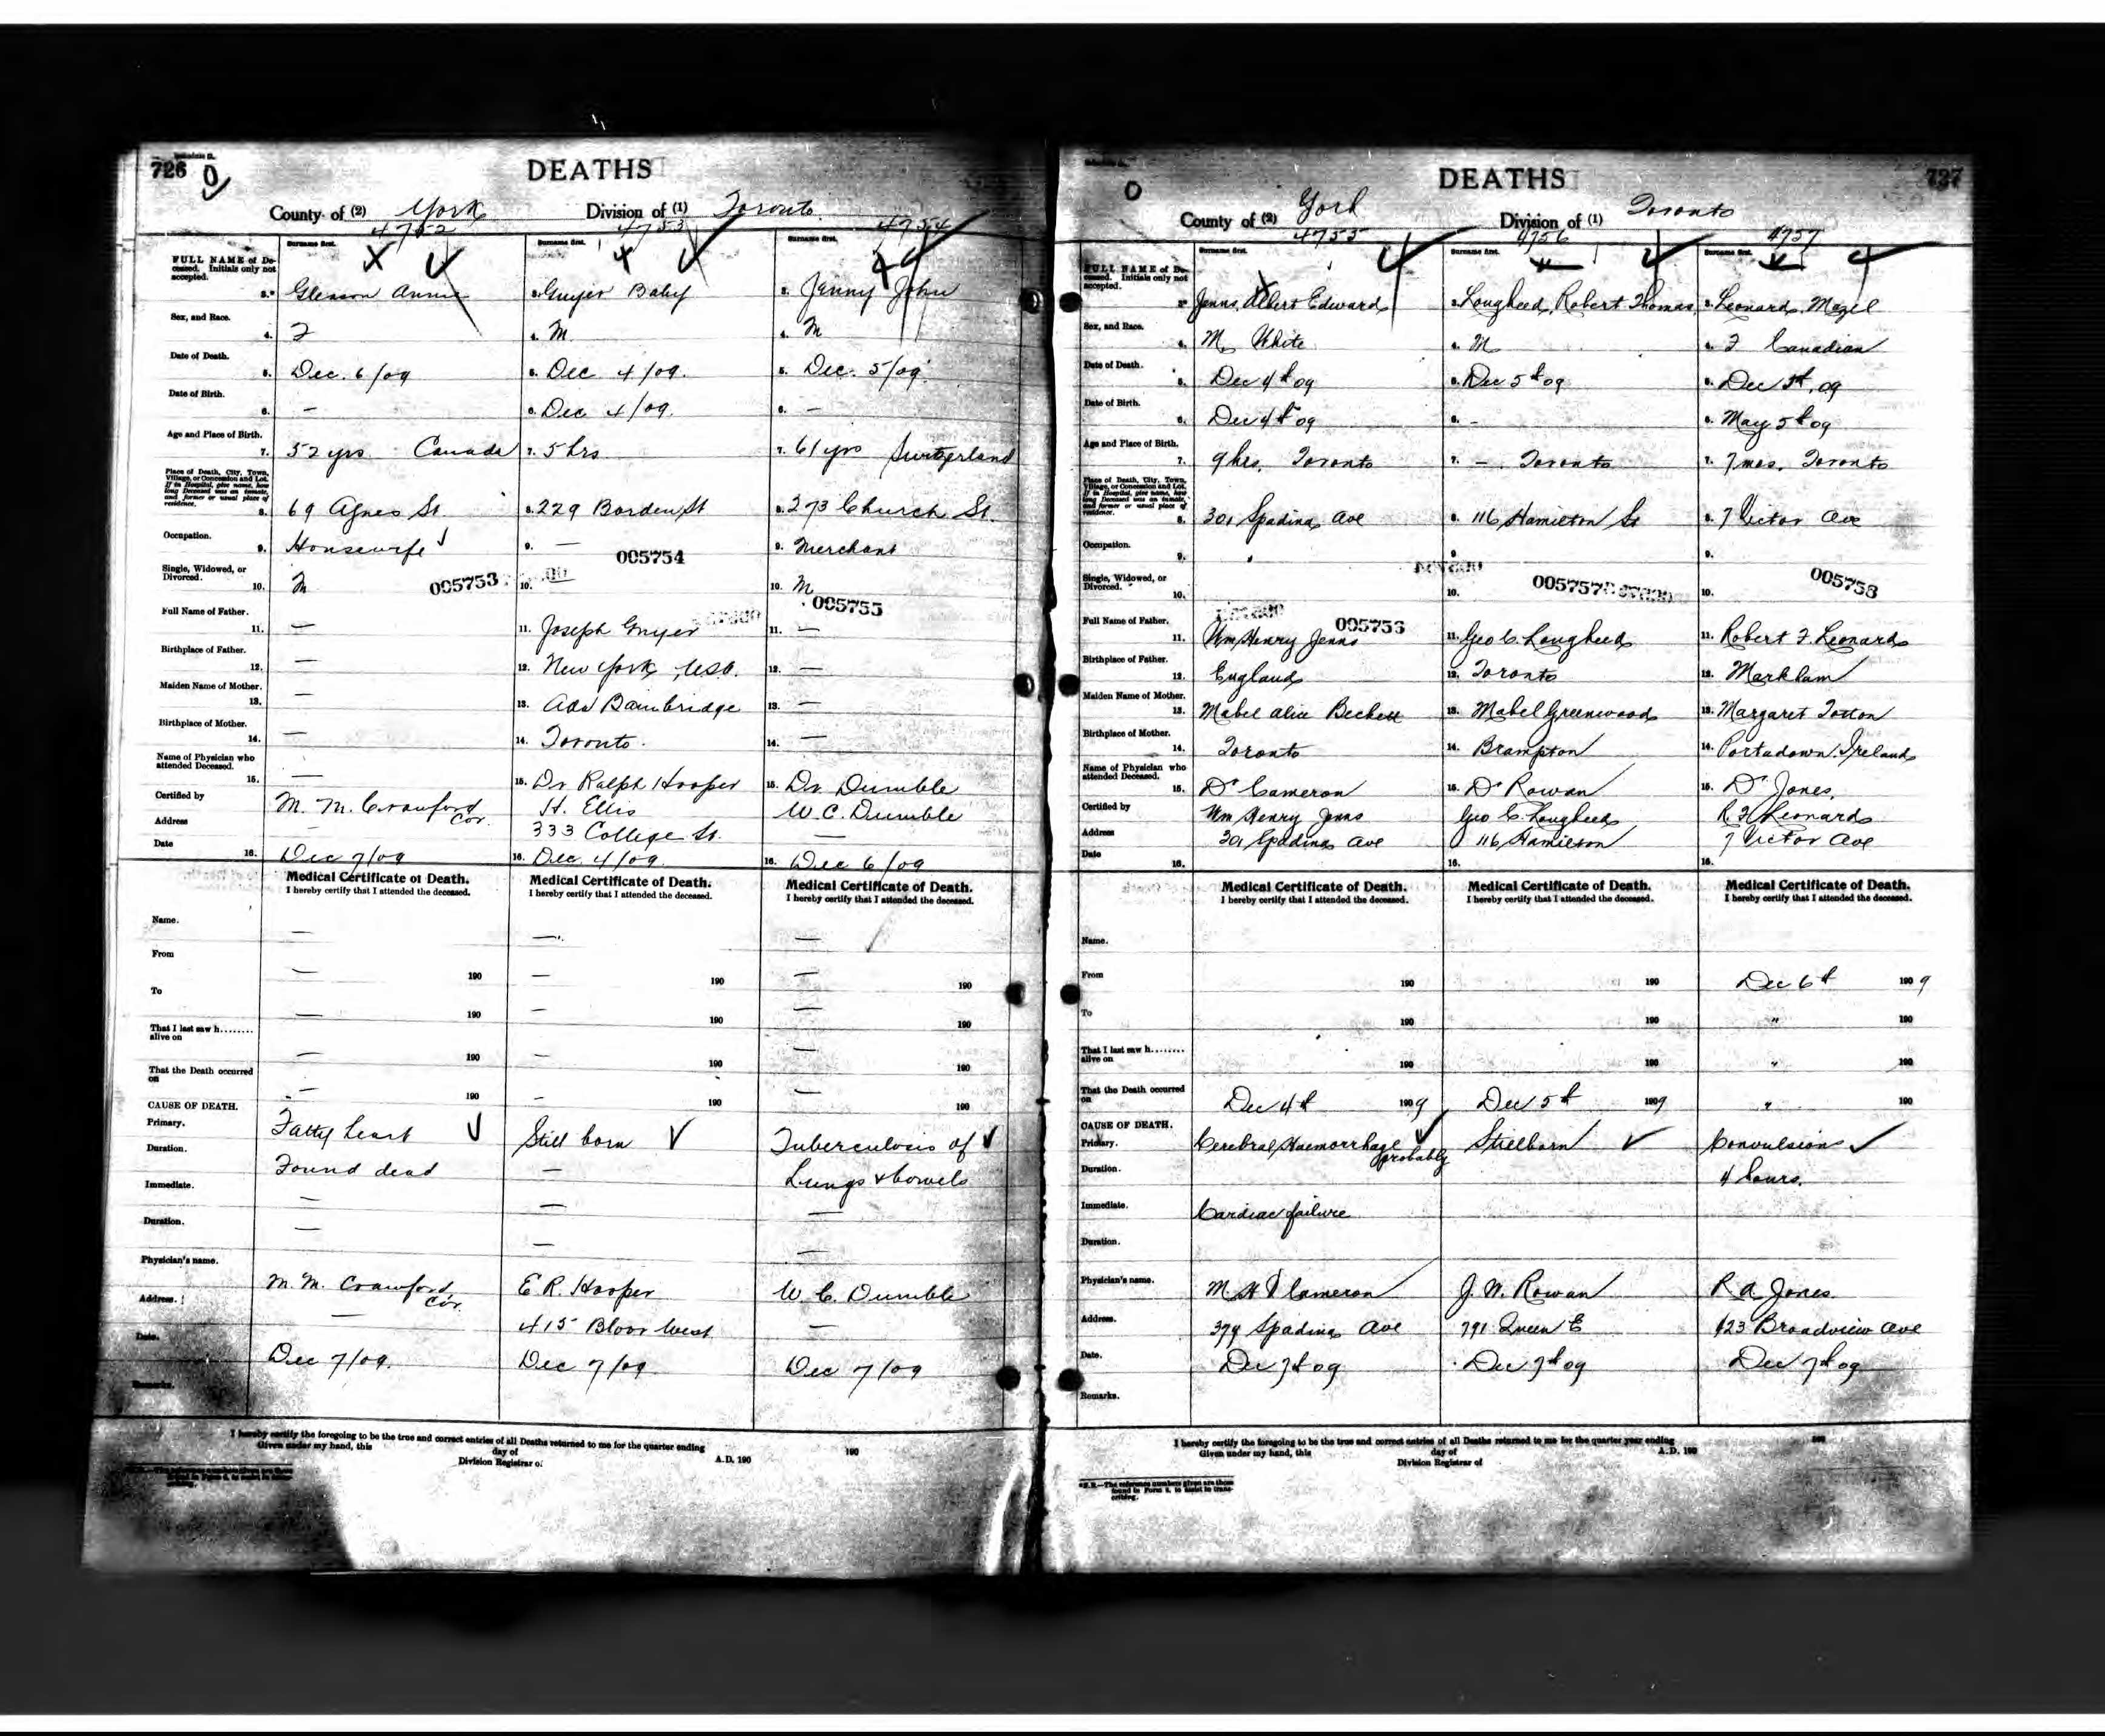 726
DEATHS
County of (2) York Division of (1) Toronto
4752 4753 4754
Surname first. Surname first. Surname first.
FULL NAME of Deceased. Initials only not accepted.
Gleason Annie 3. Guyer Baby 3. Jenny John
Sex, and Race.
4. F 4. M 4. M
Date of Death.
5. Dec. 6/09 5. Dec 4/09. 5. Dec. 5/09
Date of Birth.
6. — 6. Dec 4/09. 6. —
Age and Place of Birth.
7. 52 yrs Canada 7. 5 hrs 7. 61 yrs Switzerland
Place of Death, City, Town, Village, or Concession and Lot. If in Hospital, give name, how long Deceased was an inmate, and former or usual place of residence.
8. 69 Agnes St. 8. 229 Borden St 8. 273 Church St.
Occupation.
9. Housewife 9. — 9. Merchant
005754
Single, Widowed, or Divorced.
10. M 005753 10. — 10. M
005755
Full Name of Father.
11. — 11. Joseph Guyer 11. —
Birthplace of Father.
12. — 12. New York, USA. 12. —
Maiden Name of Mother.
13. — 13. Ada Bainbridge 13. —
Birthplace of Mother.
14. — 14. Toronto. 14. —
Name of Physician who attended Deceased.
15. — 15. Dr Ralph Hooper 15. Dr. Dumble
Certified by M. M. Crawford Cor. H. Ellis W. C. Dumble
Address — 333 College St. —
Date
16. Dec 7/09 16. Dec. 4/09. 16. Dec 6/09
Medical Certificate of Death. Medical Certificate of Death. Medical Certificate of Death.
I hereby certify that I attended the deceased. I hereby certify that I attended the deceased. I hereby certify that I attended the deceased.
Name. — — —
From — 190 — 190 — 190
To — 190 — 190 — 190
That I last saw h........ alive on — 190 — 190 — 190
That the Death occurred on — 190 — 190 — 190
CAUSE OF DEATH.
Primary. Fatty heart Still born Tuberculosis of
Duration. Found dead — Lungs & bowels
Immediate. — — —
Duration. — — —
Physician's name. M. M. Crawford Cor. E. R. Hooper W. C. Dumble
Address. — 415 Bloor West —
Date. Dec 7/09. Dec 7/09. Dec 7/09
Remarks.
I hereby certify the foregoing to be the true and correct entries of all Deaths returned to me for the quarter ending 190
Given under my hand, this day of A.D. 190
Division Registrar of
727
DEATHS
County of (2) York Division of (1) Toronto
4755 4756 4757
Surname first. Surname first. Surname first.
FULL NAME of Deceased. Initials only not accepted.
Jenns, Albert Edward 3. Lougheed, Robert Thomas 3. Leonard, Mazel
Sex, and Race.
4. M. White 4. M 4. F Canadian
Date of Death.
5. Dec 4th 09 5. Dec 5th 09 5. Dec 5th, 09
Date of Birth.
6. Dec 4th 09 6. - 6. May 5th 09
Age and Place of Birth.
7. 9 hrs, Toronto 7. — Toronto 7. 7 mos. Toronto
Place of Death, City, Town, Village, or Concession and Lot. If in Hospital, give name, how long Deceased was an inmate, and former or usual place of residence.
8. 301 Spadina Ave 8. 116 Hamilton St 8. 7 Victor Ave
Occupation.
9. 9. 9.
Single, Widowed, or Divorced.
10. 10. 005757 10. 005758
Full Name of Father. 005756
11. Wm Henry Jenns 11. Geo C. Lougheed 11. Robert F. Leonard
Birthplace of Father.
12. England 12. Toronto 12. Markham
Maiden Name of Mother.
13. Mabel Alice Beckett 13. Mabel Greenwood 13. Margaret Totton
Birthplace of Mother.
14. Toronto 14. Brampton 14. Portadown Ireland
Name of Physician who attended Deceased.
15. Dr Cameron 15. Dr Rowan 15. Dr Jones.
Certified by Wm Henry Jenns Geo C. Lougheed R. F. Leonard
Address 301 Spadina Ave 116 Hamilton 7 Victor Ave
Date
16. 16. 16.
Medical Certificate of Death. Medical Certificate of Death. Medical Certificate of Death.
I hereby certify that I attended the deceased. I hereby certify that I attended the deceased. I hereby certify that I attended the deceased.
Name.
From 190 190 Dec 6th 1909
To 190 190 " 190
That I last saw h........ alive on 190 190 " 190
That the Death occurred on Dec 4th 1909 Dec 5th 1909 " 190
CAUSE OF DEATH.
Primary. Cerebral Haemorrhage probably Stillborn Convulsions
Duration. 4 hours.
Immediate. Cardiac failure
Duration.
Physician's name. M. H. V. Cameron J. W. Rowan R. A. Jones.
Address. 379 Spadina Ave 791 Queen E 423 Broadview Ave
Date. Dec 7th 09 Dec 7th 09 Dec 7th 09
Remarks.
I hereby certify the foregoing to be the true and correct entries of all Deaths returned to me for the quarter year ending
Given under my hand, this day of A.D. 190
Division Registrar of
*N.B.—The reference numbers given are those found in Form 6, to assist in transcribing.